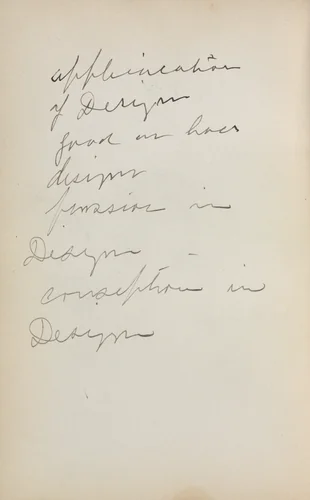 application
of Design
good or
design
in
Design -
conseption in
Design